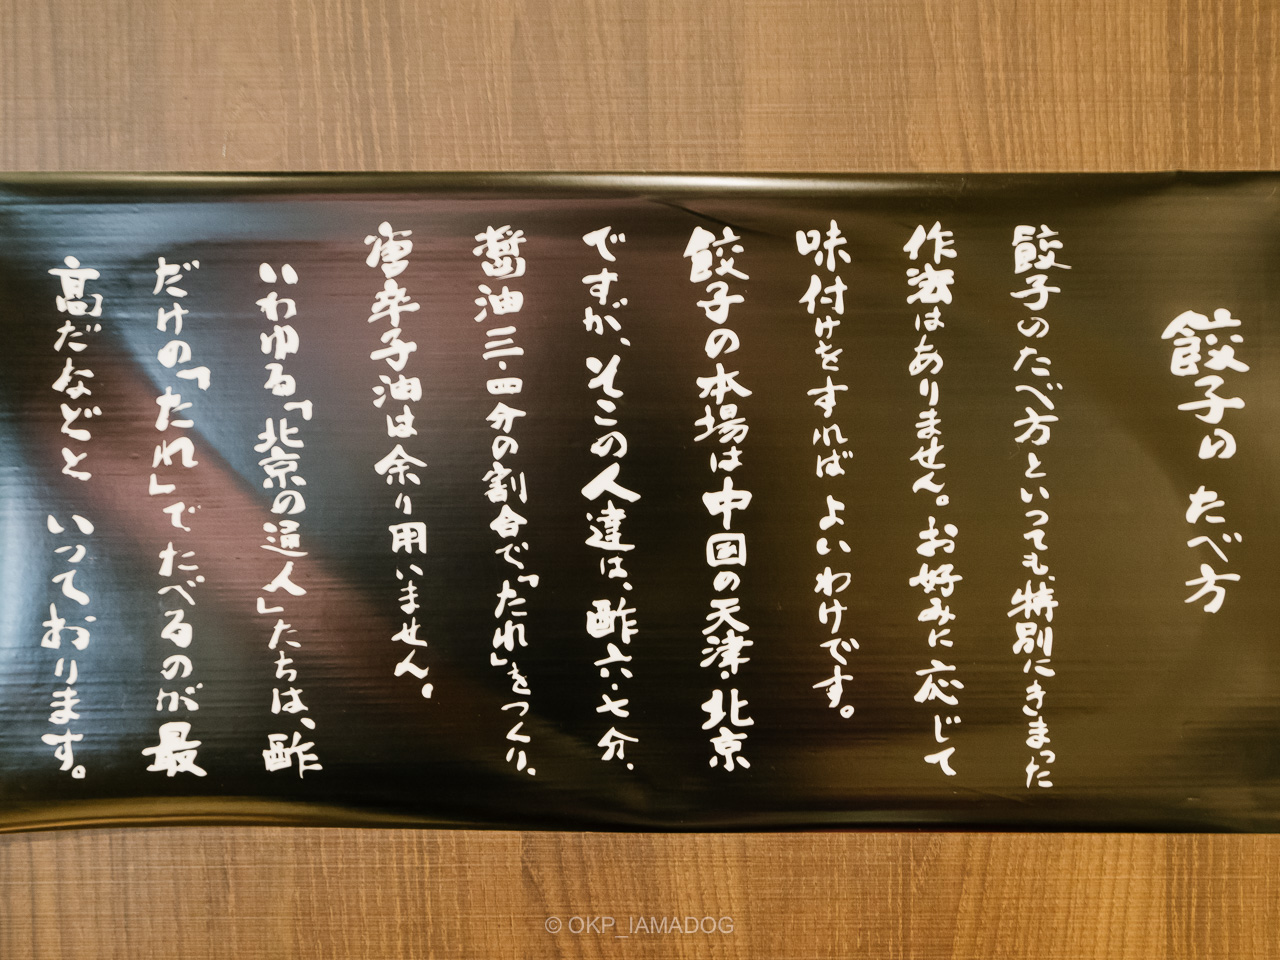 餃子のたべ方
餃子のたべ方といっても、特別にきまった
作法はありません。お好みに応じて
味付けをすればよいわけです。
餃子の本場は中国の天津・北京
ですが、そこの人達は、酢六・七分、
醤油三・四分の割合で「たれ」をつくり、
唐辛子油は余り用いません。
いわゆる「北京の通人」たちは、酢
だけの「たれ」でたべるのが最
高だなどと いっております。
© OKP_IAMADOG